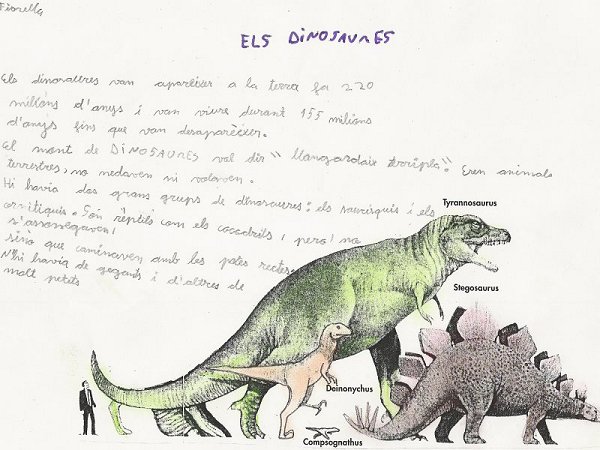 Fiorella
ELS DINOSAURES
Els dinosaures van aparèixer a la terra fa 220
milions d'anys i van viure durant 155 milions
d'anys fins que van desaparèixer.
El mont de DINOSAURES vol dir " llangardaix terrible". Eren animals
terrestres, no nedaven ni volaven.
Hi havia dos grans grups de dinosaures: els saurisquis i els
ornitiquis. Són rèptils com els cocodrils, però no
s'arrosegaven,
sino que caminaven amb les potes rectes.
N'hi havia de gegants i d'altres de
molt petits
Tyrannosaurus
Stegosaurus
Deinonychus
Compsognathus